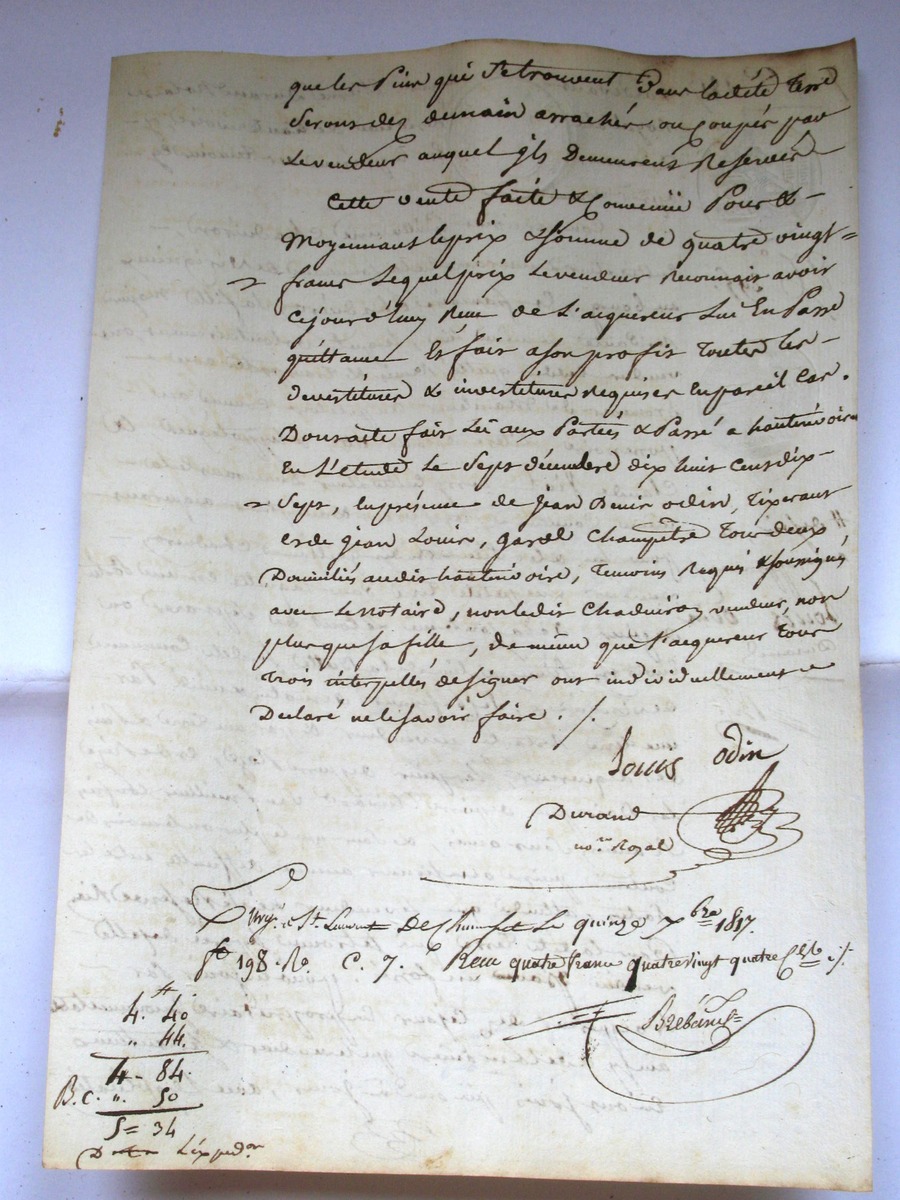 que les Pins qui se trouvent dans ladite Terre
seront dez demain arrachés ou Coupés par
Le vendeur auquel ils Demeurent Reservés
Cette vente faite & Convenüe Pour &
Moyennant le prix & somme de quatre vingt=
francs Lequel prix Le vendeur Reconnait avoir
Cejourd'huy Reçu de L'acquereur Lui En Passe
quittance Et fait a son profit Toutes les
devestitures & investitures Requises En pareil Cas.
Dont acte fait Lû aux Parties & Passé a hauterivoire
En L'etude Le Sept décembre dix huit Cent dix-
Sept, En présence de Jean Denis odin, Tixerant
et de Jean Louis, garde Champêtre Tous deux
Domiciliés audit hauterivoire, Temoins Requis & soussignés
avec Le Notaire, non ledit Chaduiron vendeur, non
plus que sa fille, de même que l'acquereur Tous
Trois interpellés de signer ont individuellement
Declaré ne le savoir faire ./.
Louis odin
Durand
no.re Royal
Enrg.é a St. Laurent De Chamousset Le quinze Xbre 1817.
f.o 198. Ro. C. 7. Reçu quatre francs quatre vingt quatre C.mes ./.
4. 40
" 44.
4 - 84.
B. C. ". 50
5 = 34
L'expedon